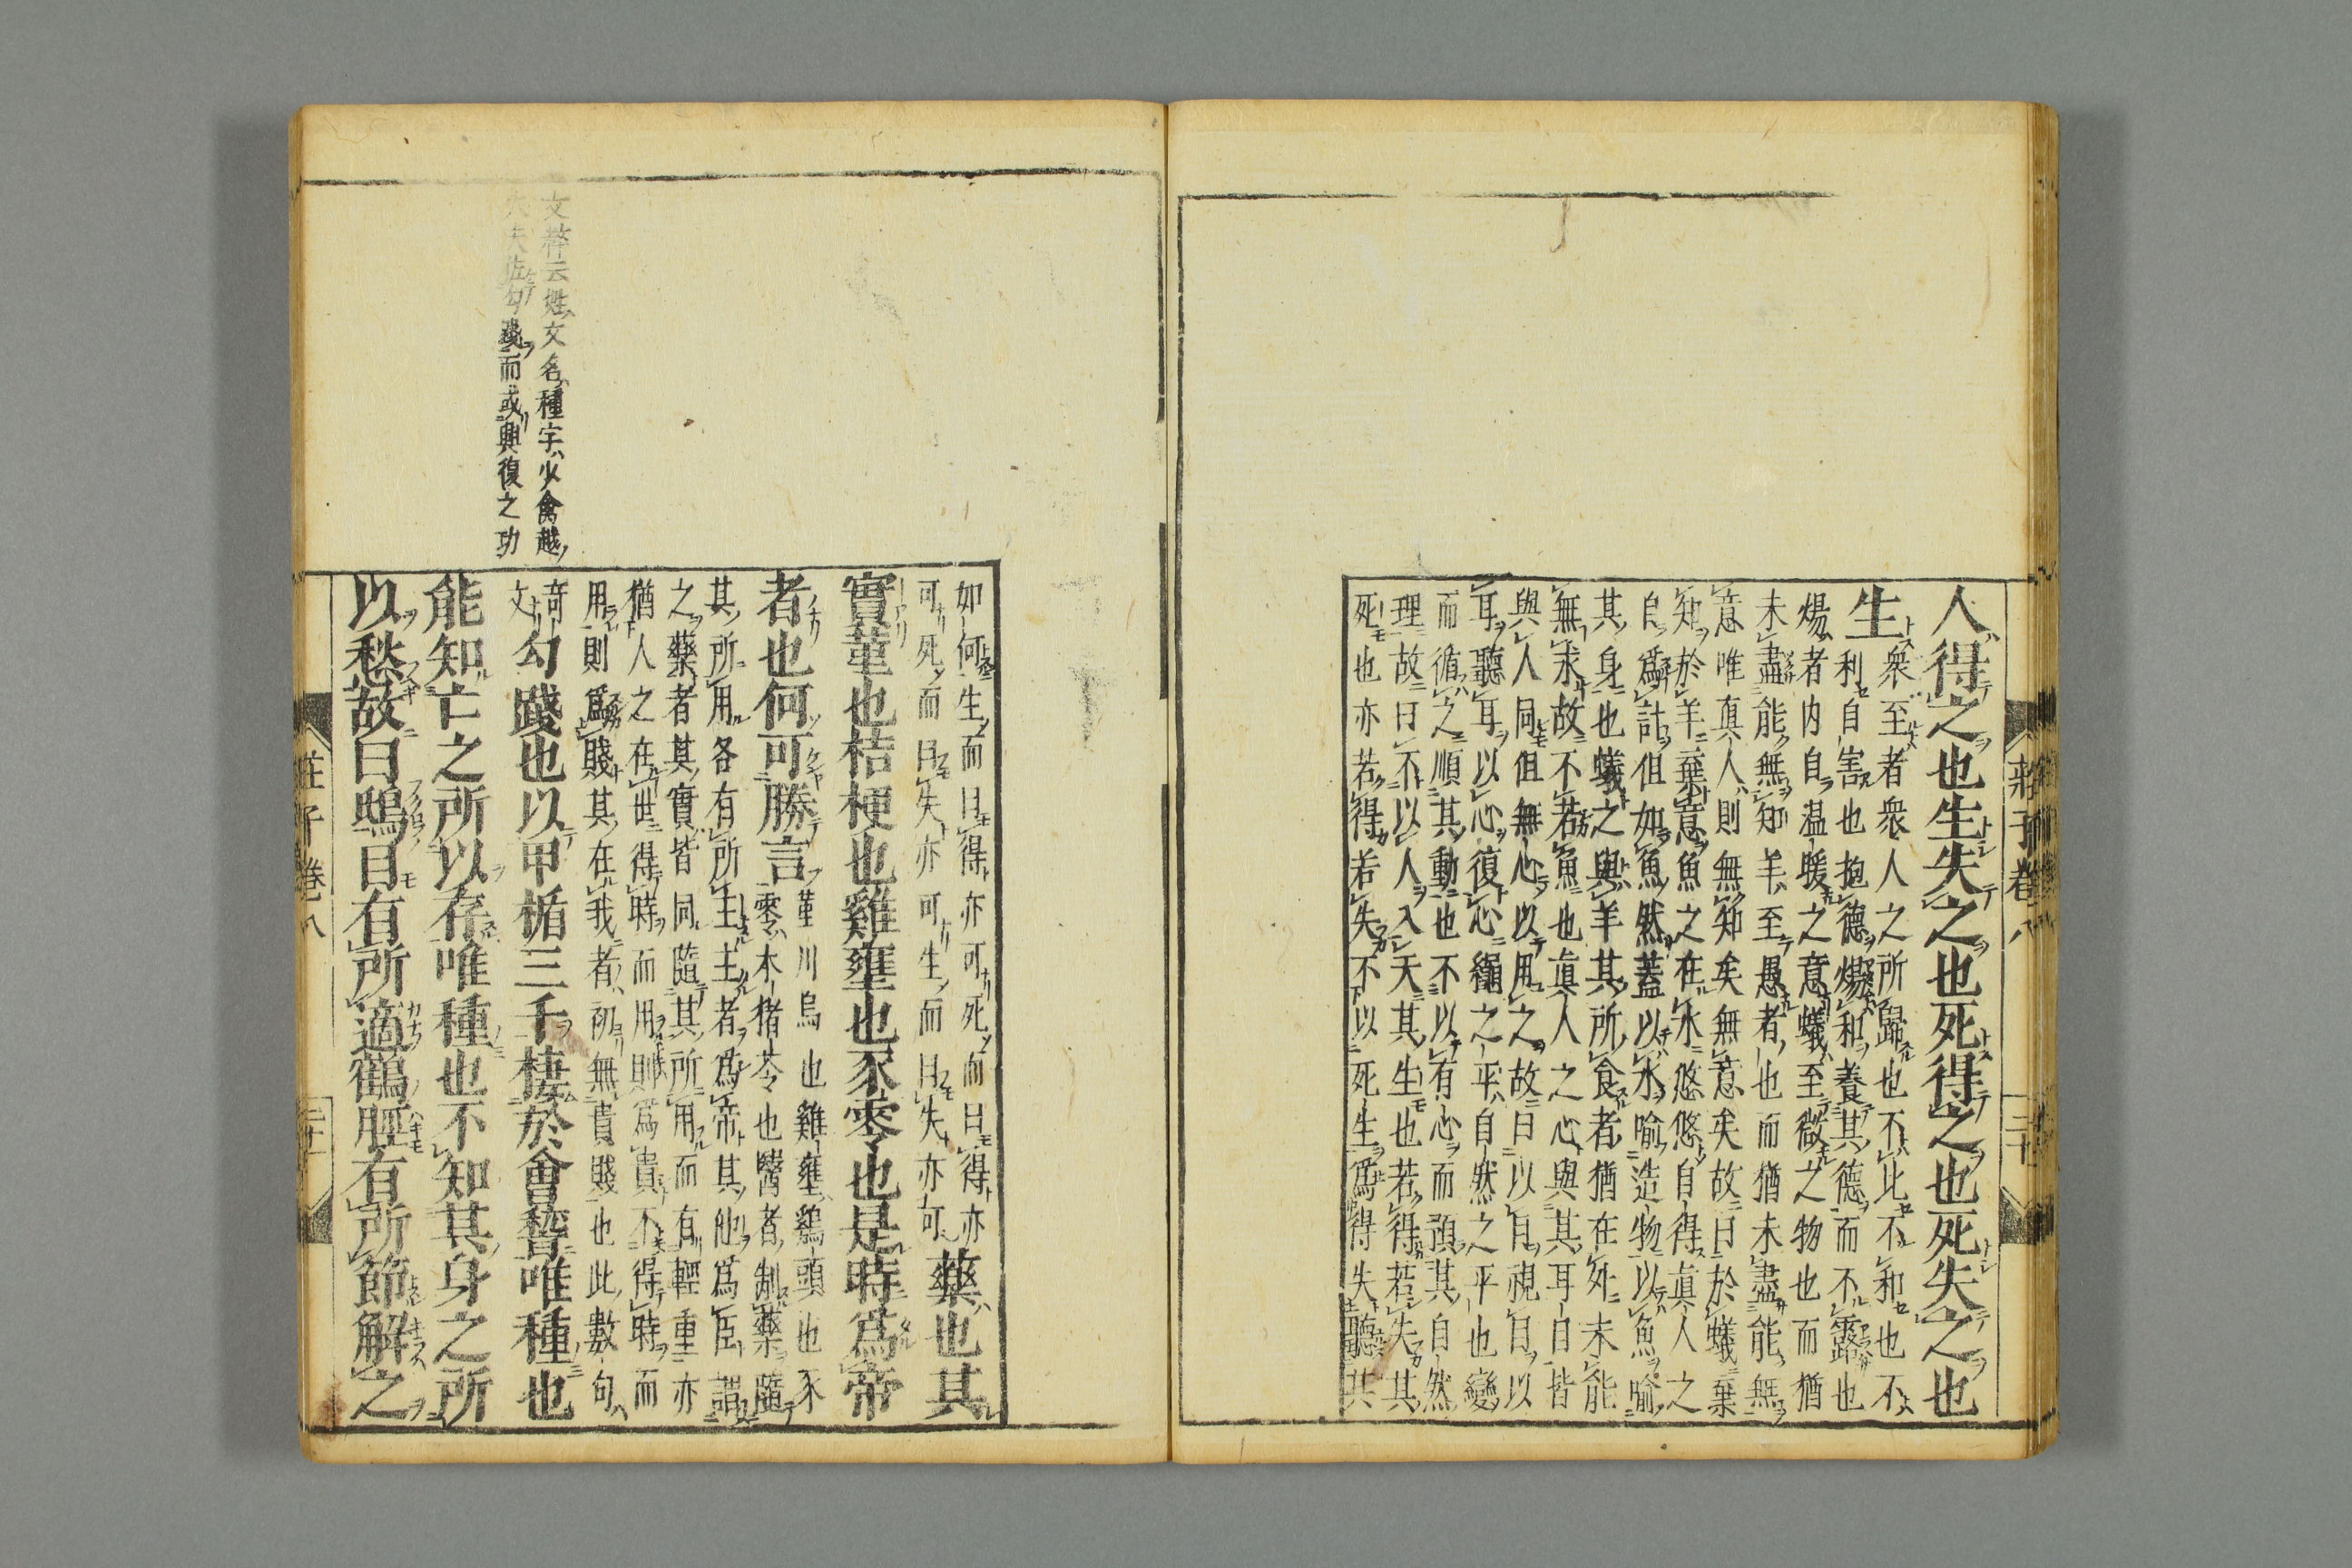 人得之也生失之也死得之也死失之也
生
衆至者衆人之所歸也不比不和也不
利自害也抱德煬和養其德而不露也
煬者内自温暖之意蟻至微之物也而猶
未盡能無知羊至愚者也而猶未盡能無
意唯真人則無知矣無意矣故曰於蟻棄
知於羊棄意魚之在水悠悠自得真人之
自爲計但如魚然蓋以水喻造物以魚喻
其身也蟻之與羊其所食者猶在外未能
無求故不若魚也真人之心與其耳目皆
與人同但無心以用之故曰以目視目以
耳聽耳以心復心繩之平自然之平也變
而循之順其動也不以有心而預其自然
理故曰不以人入天其生也若得若失其
死也亦若得若失不以死生爲得失聽其
莊子卷八
二十
如何生而曰得亦可死而曰得亦
可死而曰失亦可生而曰失亦可
藥也其
實菫也桔梗也雞壅也豕零也是時爲帝
者也何可勝言
菫川烏也雞壅雞頭也豕
零木猪苓也醫者制藥隨
其所用各有所主主者爲帝其他爲臣謂
之藥者其實皆同隨其所用而有輕重亦
猶人之在世得時而用則爲貴不得時而
用則爲賤其在我者初無貴賤也此數句
奇
文
勾踐也以甲楯三千棲於會稽唯種也
能知亡之所以存唯種也不知其身之所
以愁故曰鴟目有所適鶴脛有所節解之
文種云姓文名種字少禽越
大夫佐勾踐而或興復之功
莊子卷八